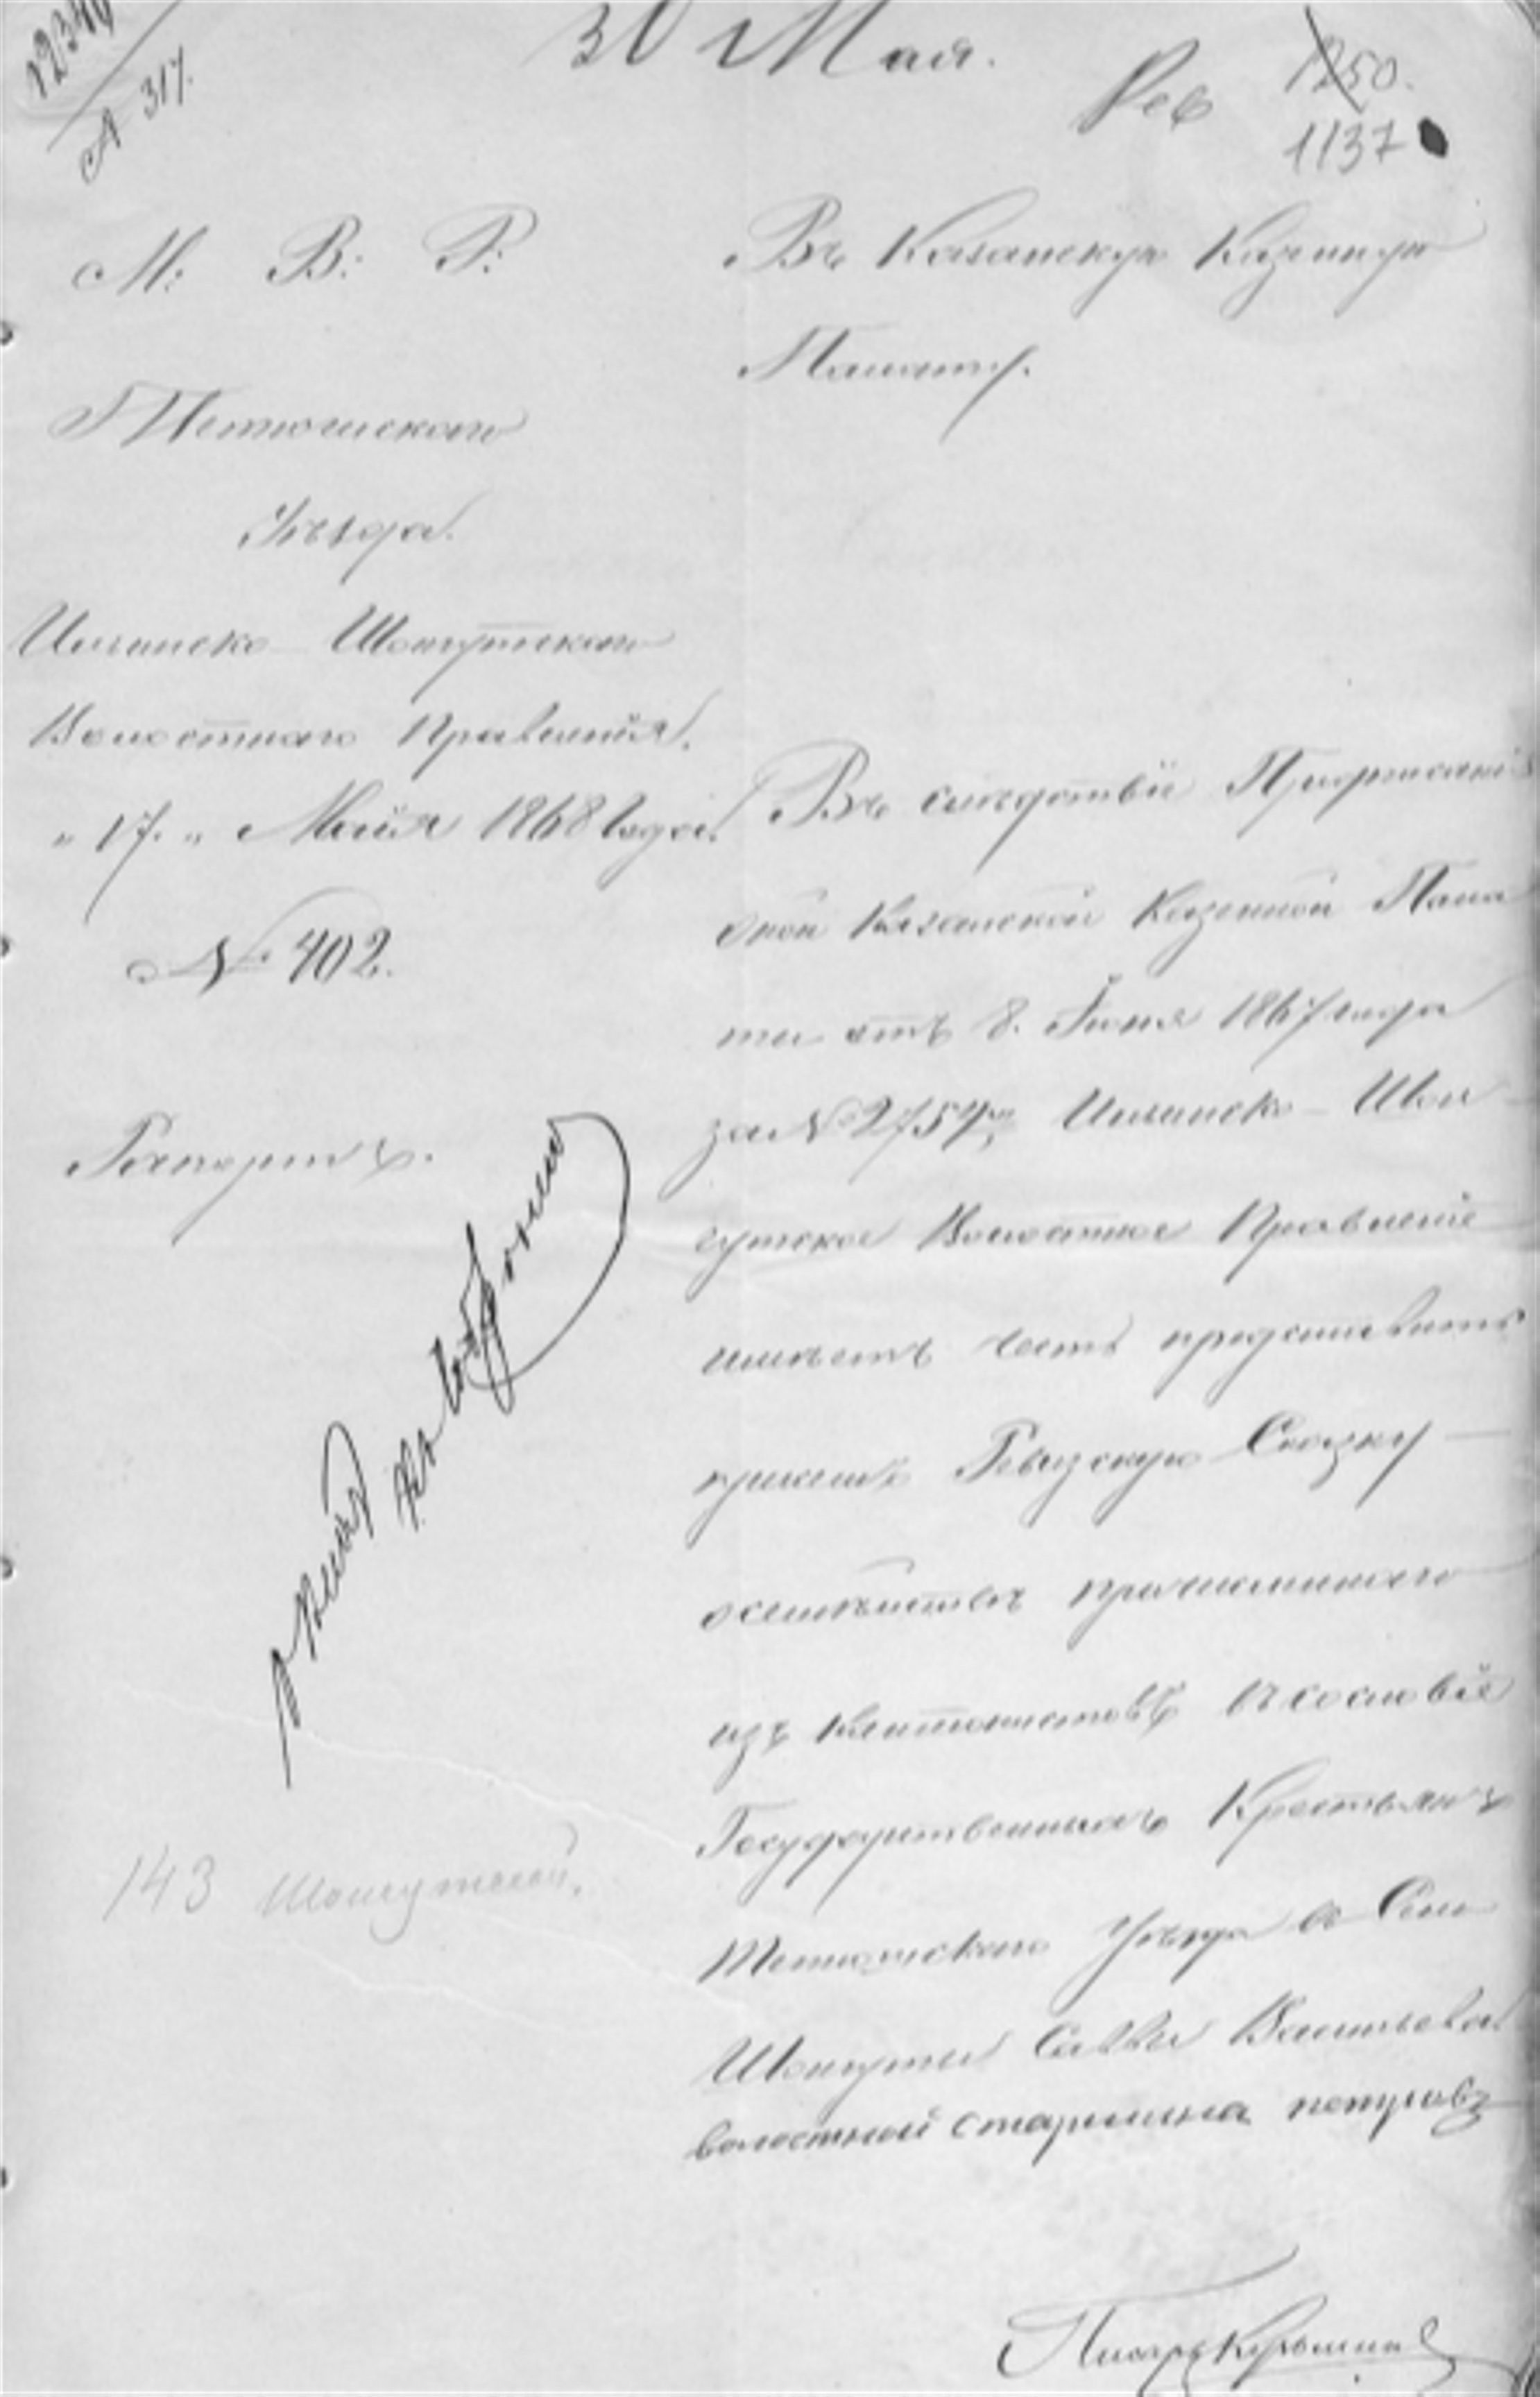 30 Мая.
Рев
1250.
1137
А 317.
М: В: Р:
Тетюшскаго
Уѣзда.
Ильинско-Шонгутскаго
Волостнаго Правленія.
„17.„ Маія 1868 года.
№ 402.
Рапортъ.
143 Шонгутской.
Въ Казанскую Казенную
Палату.
Въ следствіи Предписанія
оной Казанской Казенной Пала
ты отъ 8. Іюня 1867 года
за № 2754, Ильинско-Шон
гутское Волостное Правленіе
имѣетъ честь представить
при семъ Ревизскую Сказку
о семействѣ
изъ Кантонистовъ въ сословіе
Государственныхъ Крестьянъ
Тетюшскаго Уѣзда в Село
Шонгуты Саввы Васильева.
волостной старшина петровъ
Писарь